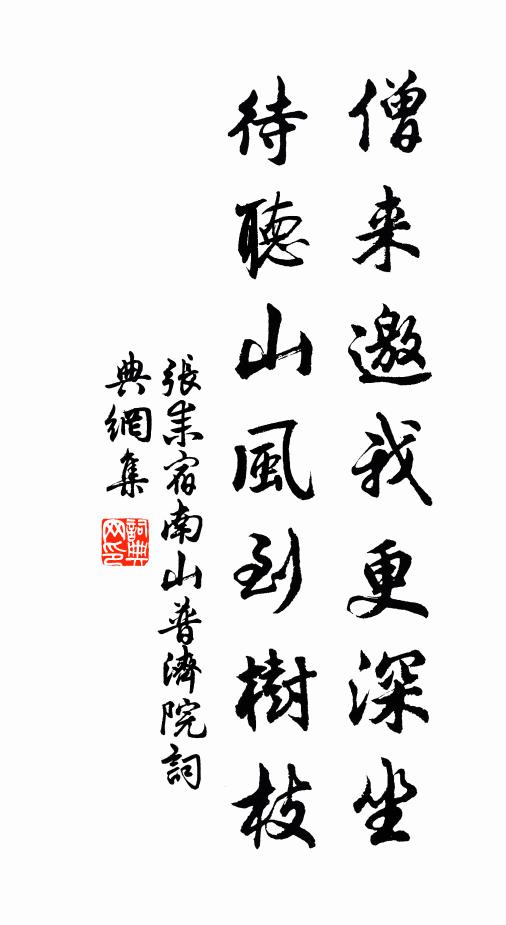 僧来邀我更深坐
待聽山風到樹枝
張耒宿南山普濟院詞
典網集
詞典
网印